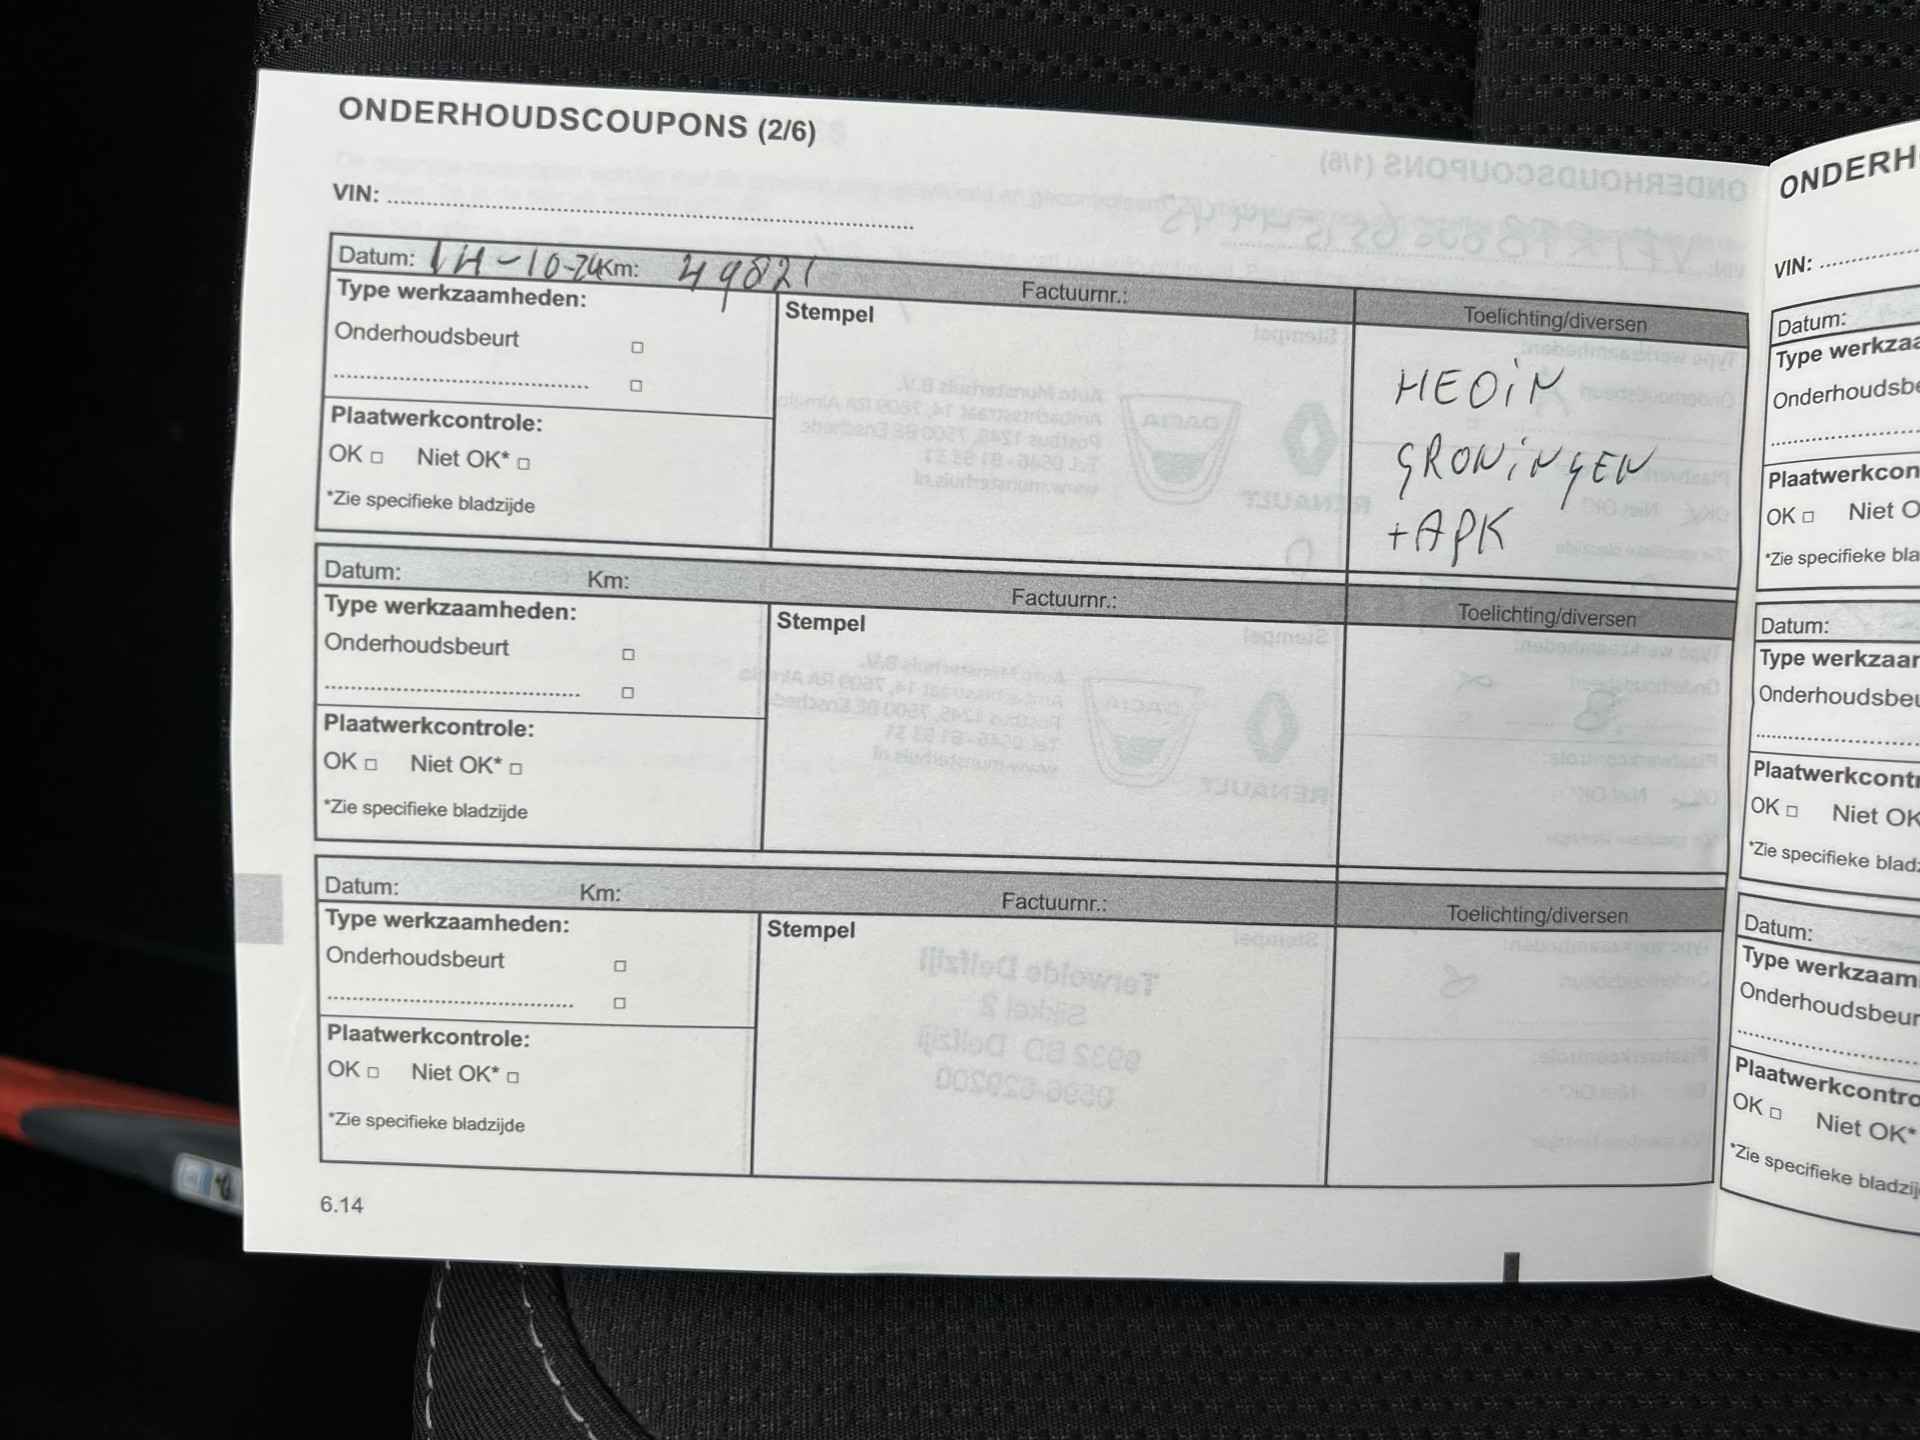 ONDERHOUDSCOUPONS (2/6)
VIN:
Datum: 14-10-24 Km: 49821 Factuurnr.: Toelichting/diversen
Type werkzaamheden:
Stempel
Onderhoudsbeurt
Plaatwerkcontrole:
OK Niet OK*
*Zie specifieke bladzijde
HEDIN
GRONINGEN
+APK
Datum: Km: Factuurnr.: Toelichting/diversen
Type werkzaamheden:
Stempel
Onderhoudsbeurt
Plaatwerkcontrole:
OK Niet OK*
*Zie specifieke bladzijde
Datum: Km: Factuurnr.: Toelichting/diversen
Type werkzaamheden:
Stempel
Onderhoudsbeurt
Plaatwerkcontrole:
OK Niet OK*
*Zie specifieke bladzijde
6.14
ONDERH
VIN:
Datum:
Type werkzaa
Onderhoudsbe
Plaatwerkcon
OK Niet O
*Zie specifieke bla
Datum:
Type werkzaar
Onderhoudsbeu
Plaatwerkcontr
OK Niet OK
*Zie specifieke bladz
Datum:
Type werkzaam
Onderhoudsbeur
Plaatwerkcontro
OK Niet OK*
*Zie specifieke bladzij